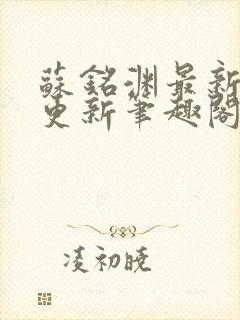 蘇銘淵最新
更新筆趣閣
淩初曉